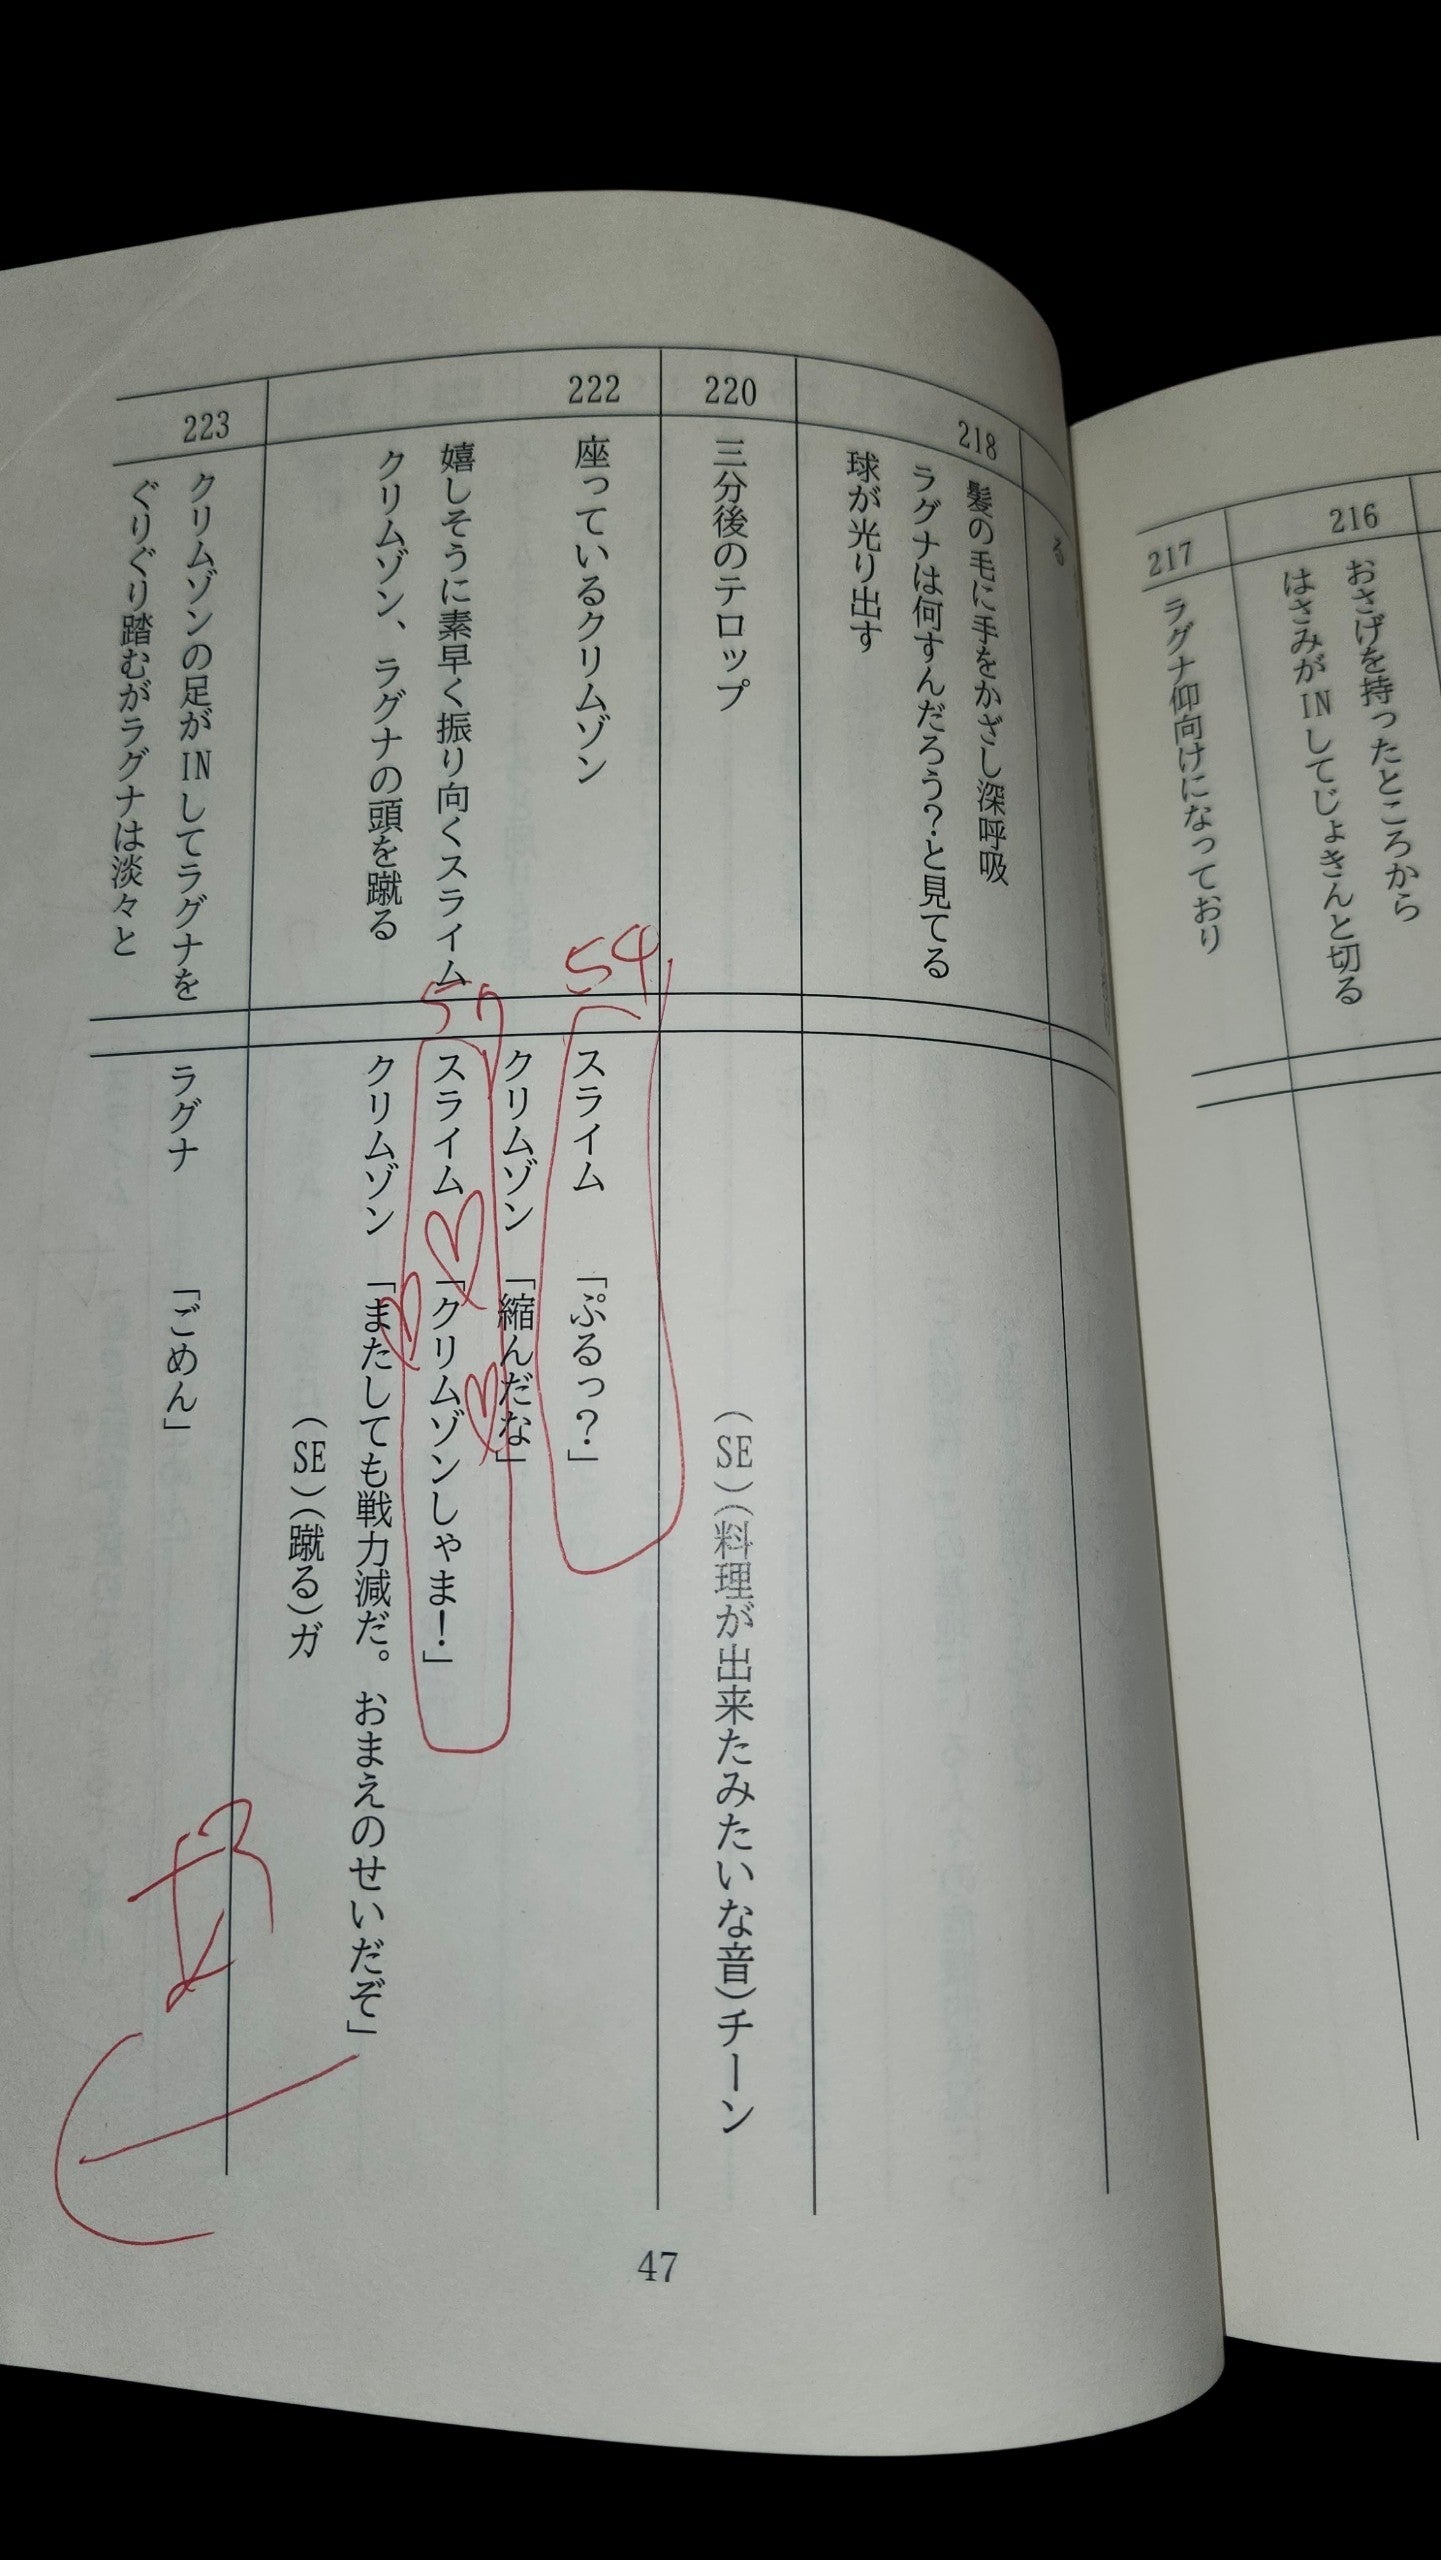 216
おさげを持ったところから
はさみがINしてじょきんと切る
217
ラグナ仰向けになっており
る
218
髪の毛に手をかざし深呼吸
ラグナは何すんだろう?と見てる
球が光り出す
220
三分後のテロップ
(SE)(料理が出来たみたいな音)チーン
222
座っているクリムゾン
嬉しそうに素早く振り向くスライム
クリムゾン、ラグナの頭を蹴る
54
スライム 「ぷるっ?」
クリムゾン 「縮んだな」
57
スライム 「クリムゾンしゃま!」
クリムゾン 「またしても戦力減だ。おまえのせいだぞ」
(SE)(蹴る)ガ
223
クリムゾンの足がINしてラグナを
ぐりぐり踏むがラグナは淡々と
ラグナ 「ごめん」
47